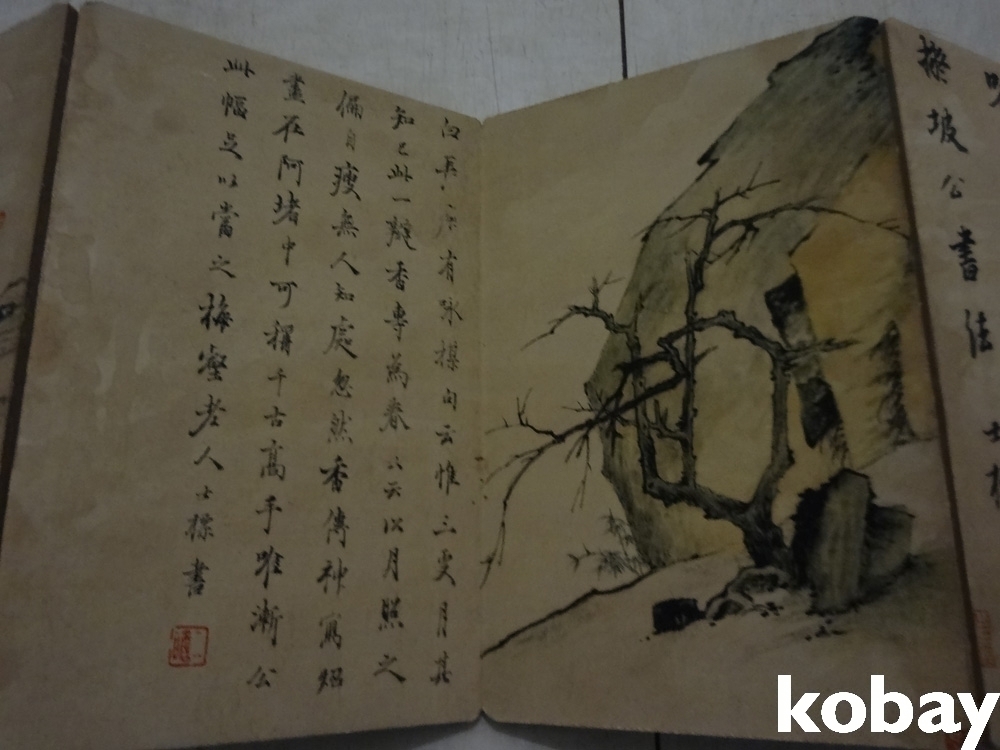 坡公書法
有咏楳句云惟三更月其
知己此一瓣香專為春又云以月照之
偏自瘦無人知處忽然香傳神寫照
盡在阿堵中可稱千古高手唯漸公
此幅足以當之梅壑老人士標書
kobay